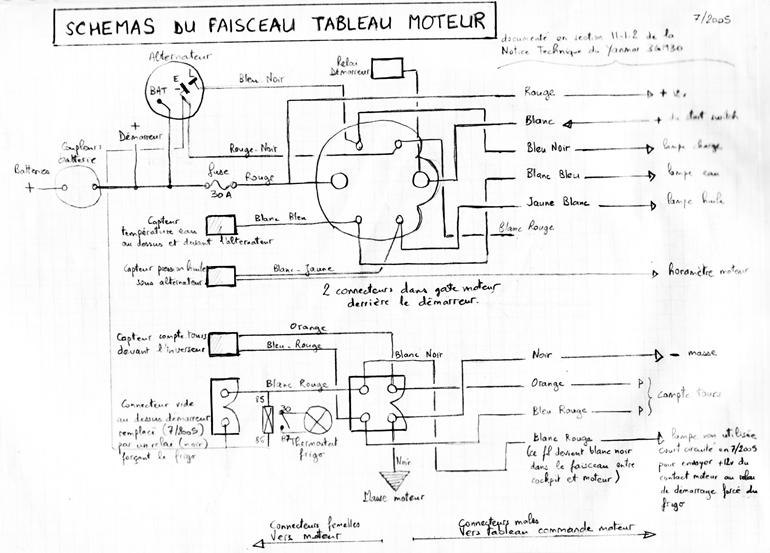 SCHEMAS DU FAISCEAU TABLEAU MOTEUR
7/2005
documenté en section 11-1.2 de la
Notice Technique du Yanmar
Alternateur
E L
BAT
Bleu-Noir
Relai
Démarreur
Rouge + 12v
Blanc + du start switch
Démarreur
+
Coupleurs
batterie
Batteries
+
Rouge-Noir
fuse
30A
Rouge
Bleu Noir lampe charge
Blanc Bleu lampe eau
Jaune Blanc lampe huile
Blanc Rouge
Capteur
température eau
au dessus et devant l'alternateur
Blanc Bleu
Capteur pression huile
sous alternateur
Blanc-Jaune
horamètre moteur
2 connecteurs dans gate moteur
derrière le démarreur.
Capteur compte tours
devant l'inverseur
Orange
Bleu-Rouge
Blanc Noir
Noir - masse
Connecteur vide
au dessus démarreur
remplacé (7/2005)
par un relai (noir)
forçant le frigo
Blanc Rouge
85
86
30
87
Thermostat
frigo
Orange
compte tours
Bleu Rouge
Blanc Rouge
(ce fil devient blanc noir
dans le faisceau entre
cockpit et moteur)
lampe non utilisée
court circuitée en 7/2005
pour envoyer +12v du
contact moteur au relai
de demarrage forcé du
frigo
Noir
Masse moteur
Connecteurs femelles
Vers moteur
Connecteurs males
Vers tableau commande moteur